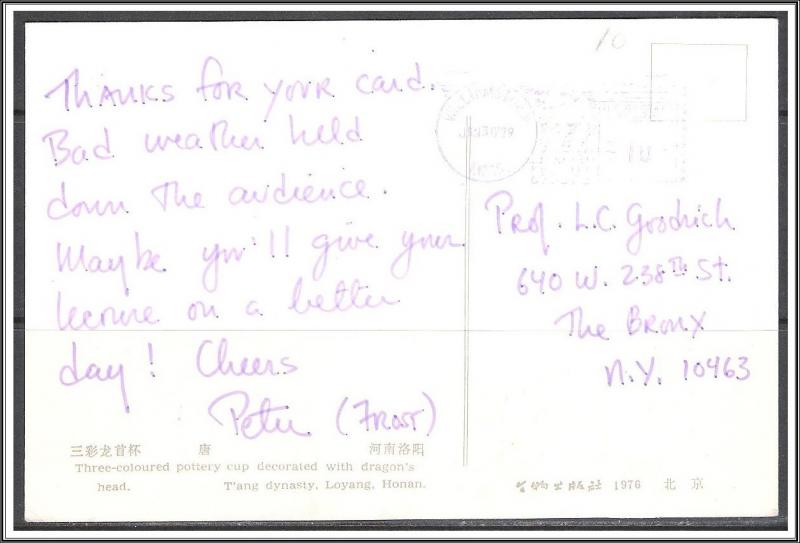 Thanks for your card.
Bad weather held
down the audience.
Maybe you'll give your
lecture on a better
day! Cheers
Peter (Frost)
10
Prof. L.C. Goodrich
640 W. 238TH St.
The Bronx
N.Y. 10463
三彩龙首杯 唐 河南洛阳
Three-coloured pottery cup decorated with dragon's
head. T'ang dynasty, Loyang, Honan.
文物出版社 1976 北京